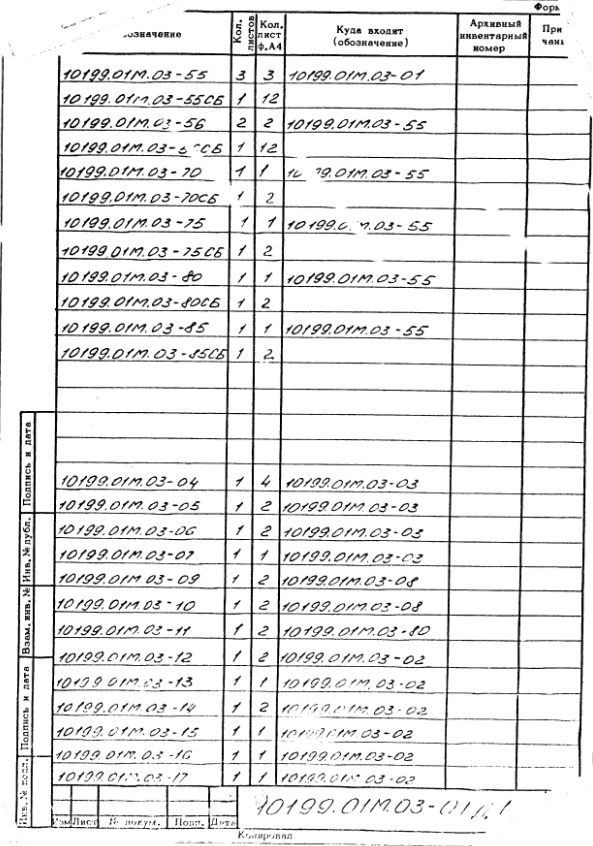 Форм
означение Кол. листов Кол. лист ф.А4 Куда входят (обозначение) Архивный инвентарный номер При чани
10199.01М.03-55 3 3 10199.01М.03-01
10199.01М.03-55СБ 1 12
10199.01М.03-56 2 2 10199.01М.03-55
10199.01М.03- СБ 1 12
10199.01М.03-70 1 1 10 9.01М.03-55
10199.01М.03-70СБ 1 2
10199.01М.03-75 1 1 10199.0 М.03-55
10199.01М.03-75СБ 1 2
10199.01М.03-80 1 1 10199.01М.03-55
10199.01М.03-80СБ 1 2
10199.01М.03-85 1 1 10199.01М.03-55
10199.01М.03-85СБ 1 2
10199.01М.03-04 1 4 10199.01М.03-03
10199.01М.03-05 1 2 10199.01М.03-03
10199.01М.03-06 1 2 10199.01М.03-03
10199.01М.03-07 1 1 10199.01М.03-03
10199.01М 03-09 1 2 10199.01М.03-08
10199.01М.03-10 1 2 10199.01М.03-08
10199.01М.03-11 1 2 10199.01М.03-80
10199.01М.03-12 1 2 10199.01М.03-02
10199 01М.03-13 1 1 10199.01М.03-02
10199.01М.03-14 1 2 10199.01М.03-02
10199.01М.03-15 1 1 10199.01М 03-02
10199.01М.03-16 1 1 10199.01М.03-02
10199.01М.03-17 1 1 10199.01М.03-02
Подпись и дата
Инв. № дубл.
Взам. инв. №
Подпись и дата
Инв. № подл.
10199.01М.03-01Д1
Изм Лист № докум. Подп. Дата
Копировал